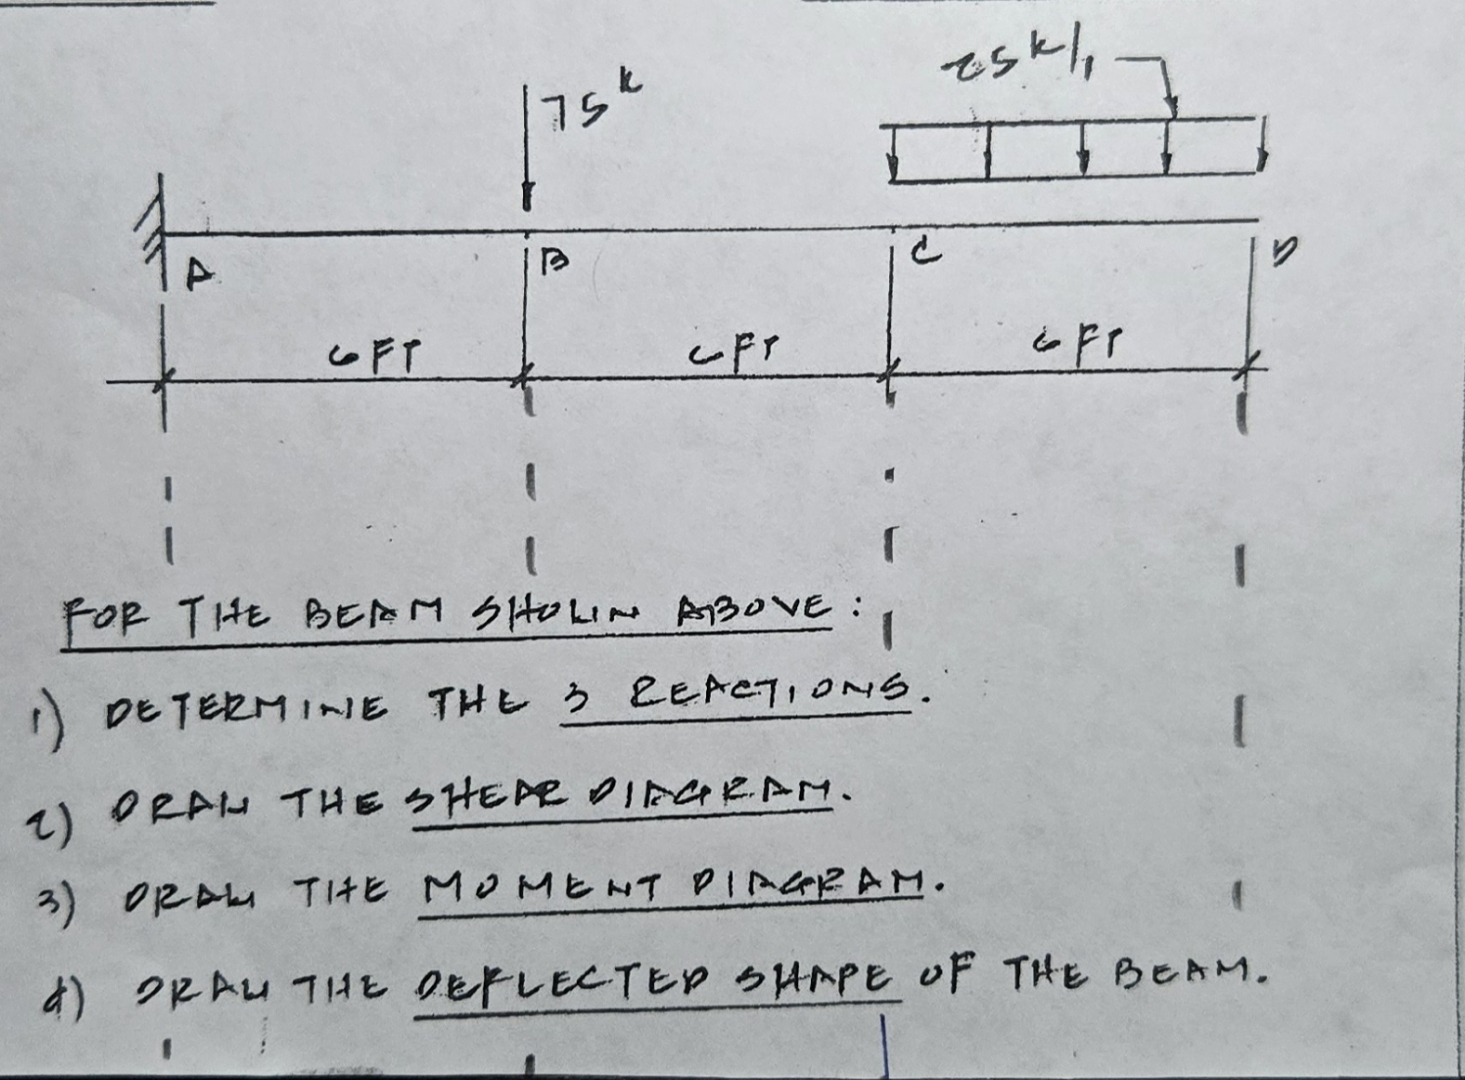 75ᵏ
25ᵏ/'
A
B
C
D
6 FT
6 FT
6 FT
FOR THE BEAM SHOWN ABOVE:
1) DETERMINE THE 3 REACTIONS.
2) DRAW THE SHEAR DIAGRAM.
3) DRAW THE MOMENT DIAGRAM.
4) DRAW THE DEFLECTED SHAPE OF THE BEAM.